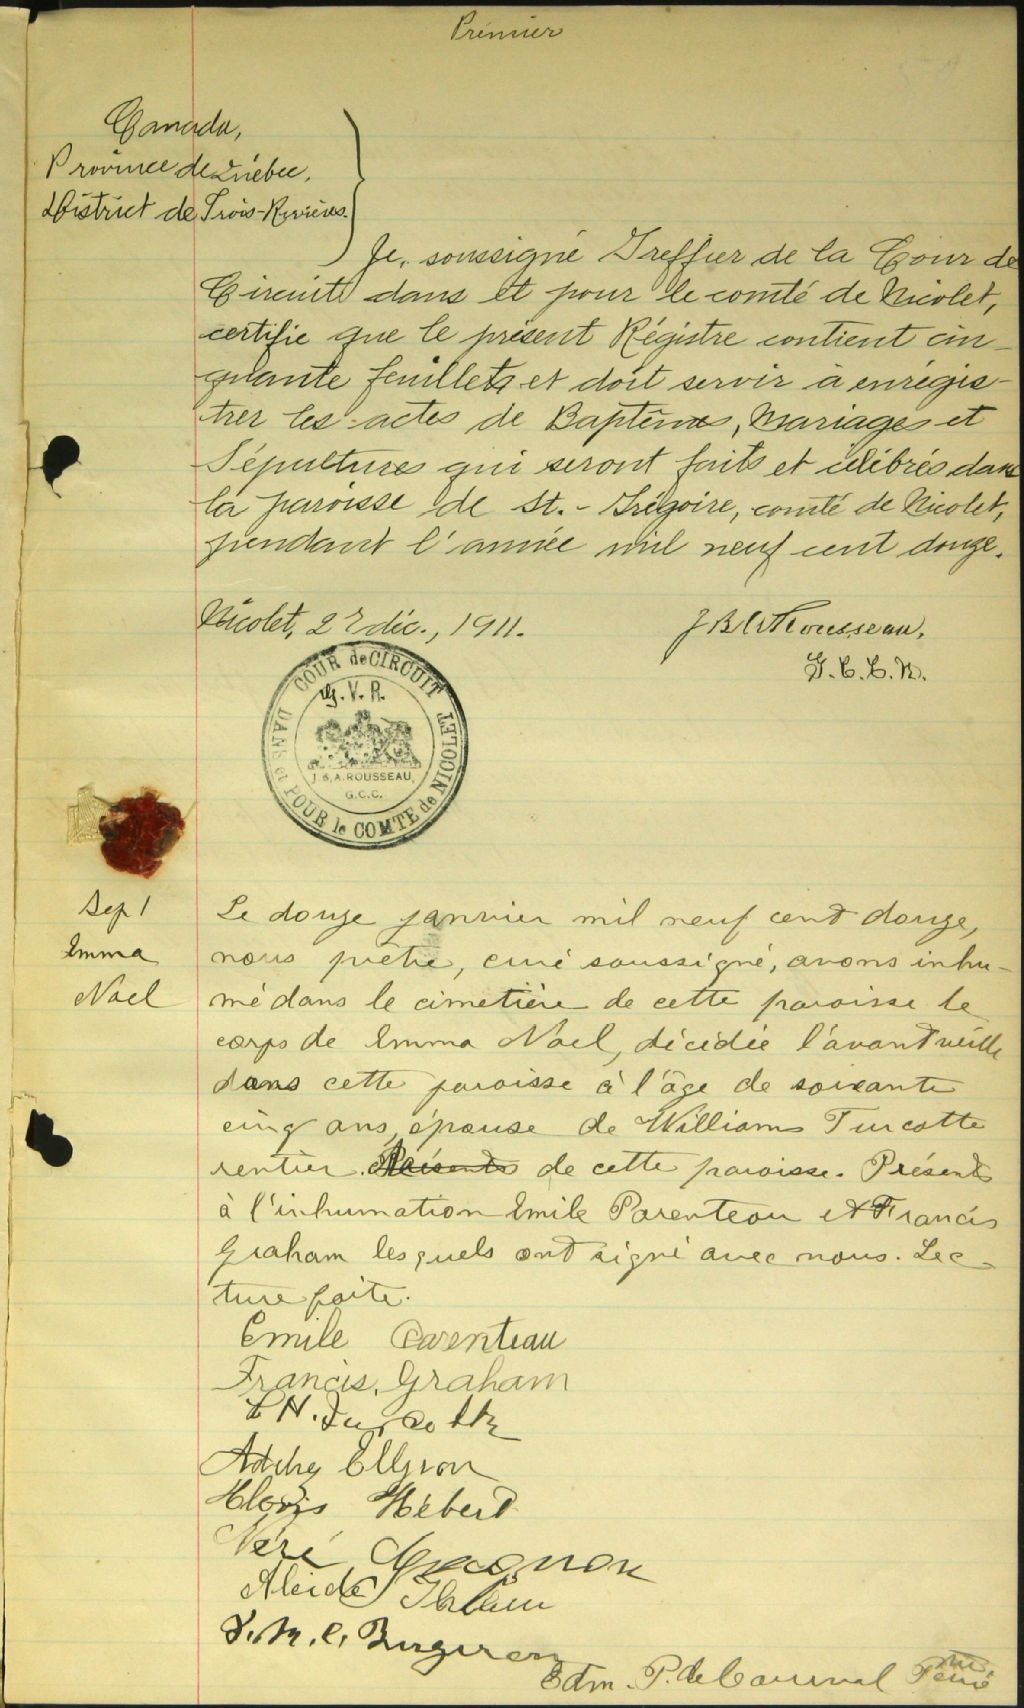 Premier
Canada,
Province de Québec.
District de Trois-Rivières.
Je, soussigné Greffier de la Cour de
Circuit dans et pour le comté de Nicolet,
certifie que le présent Régistre contient cin-
quante feuillets et doit servir à enrégis-
trer les actes de Baptêmes, Mariages et
Sépultures qui seront faits et célébrés dans
la paroisse de St.-Grégoire, comté de Nicolet,
pendant l'année mil neuf cent douze.
Nicolet, 27 déc., 1911.
Rousseau,
G.C.C.N.
COUR de CIRCUIT
DANS et POUR le COMTE de NICOLET
G.V.R.
J.B.A. ROUSSEAU,
G.C.C.
Sep 1
Emma
Noel
Le douze janvier mil neuf cent douze,
nous prêtre, curé soussigné, avons inhu-
mé dans le cimetière de cette paroisse le
corps de Emma Noel, décédée l'avant veille
dans cette paroisse à l'âge de soixante
cinq ans, épouse de Williams Turcotte
rentier Présents de cette paroisse. Présents
à l'inhumation Emile Parenteau et Francis
Graham lesquels ont signé avec nous. Lec-
ture faite.
Emile Parenteau
Francis. Graham
H. Turcotte
Ellyson
Clovis Hébert
Néré Gagnon
Alcide
Bergeron
Edm. P. de Courval Ptre